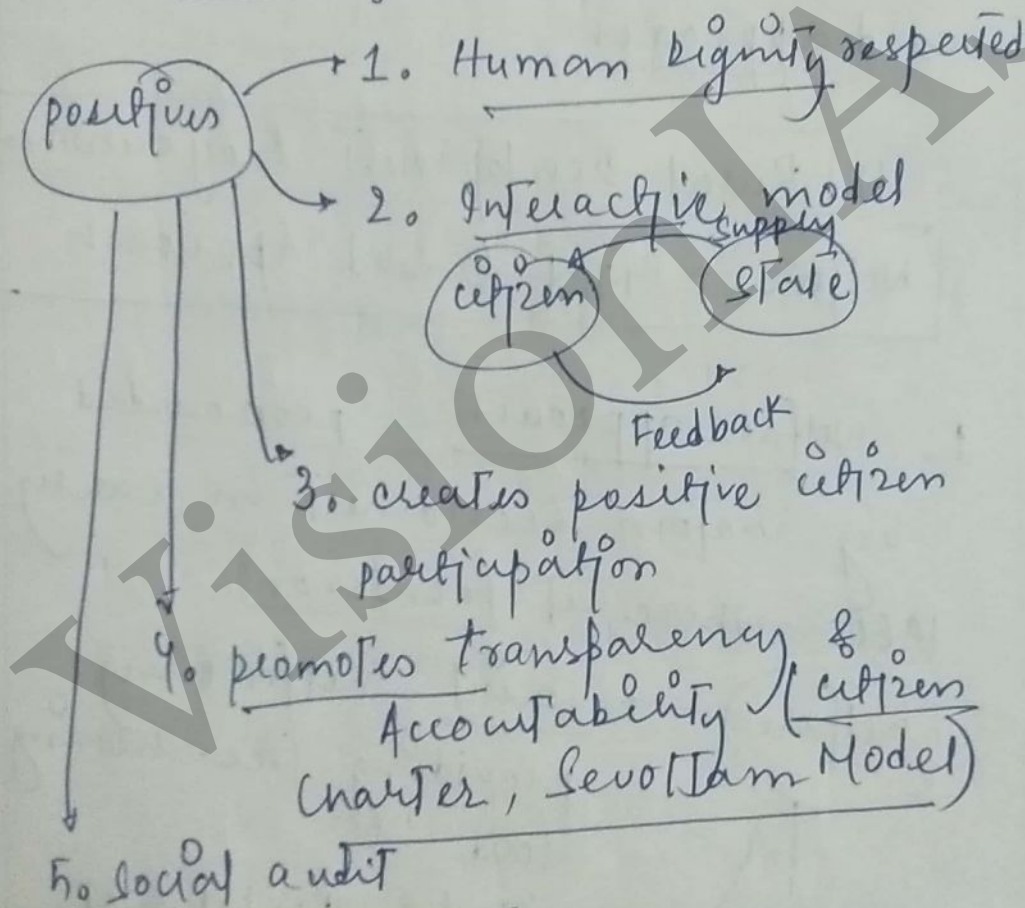 positives
1. Human Dignity respected
2. Interactive model
supply
citizen
state
Feedback
3. creates positive citizen
participation
4. promotes transparency &
Accountability (citizen
charter, Sevottam Model)
5. social audit
VisionIAS